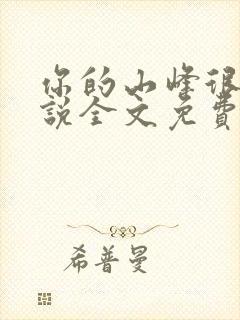 你的小峰很
説全文免費
希普曼